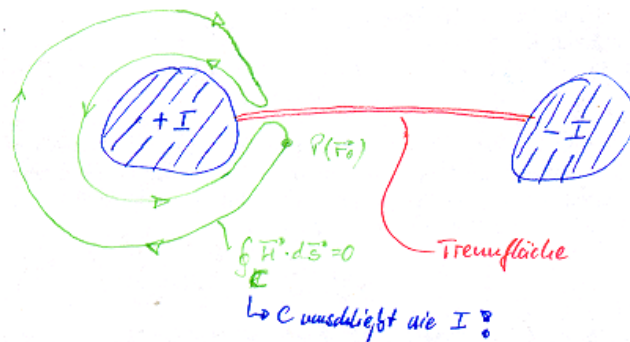 + I
- I
P(r⃗₀)
∮_C H⃗·ds⃗ = 0
Trennfläche
↳ C umschließt nie I !